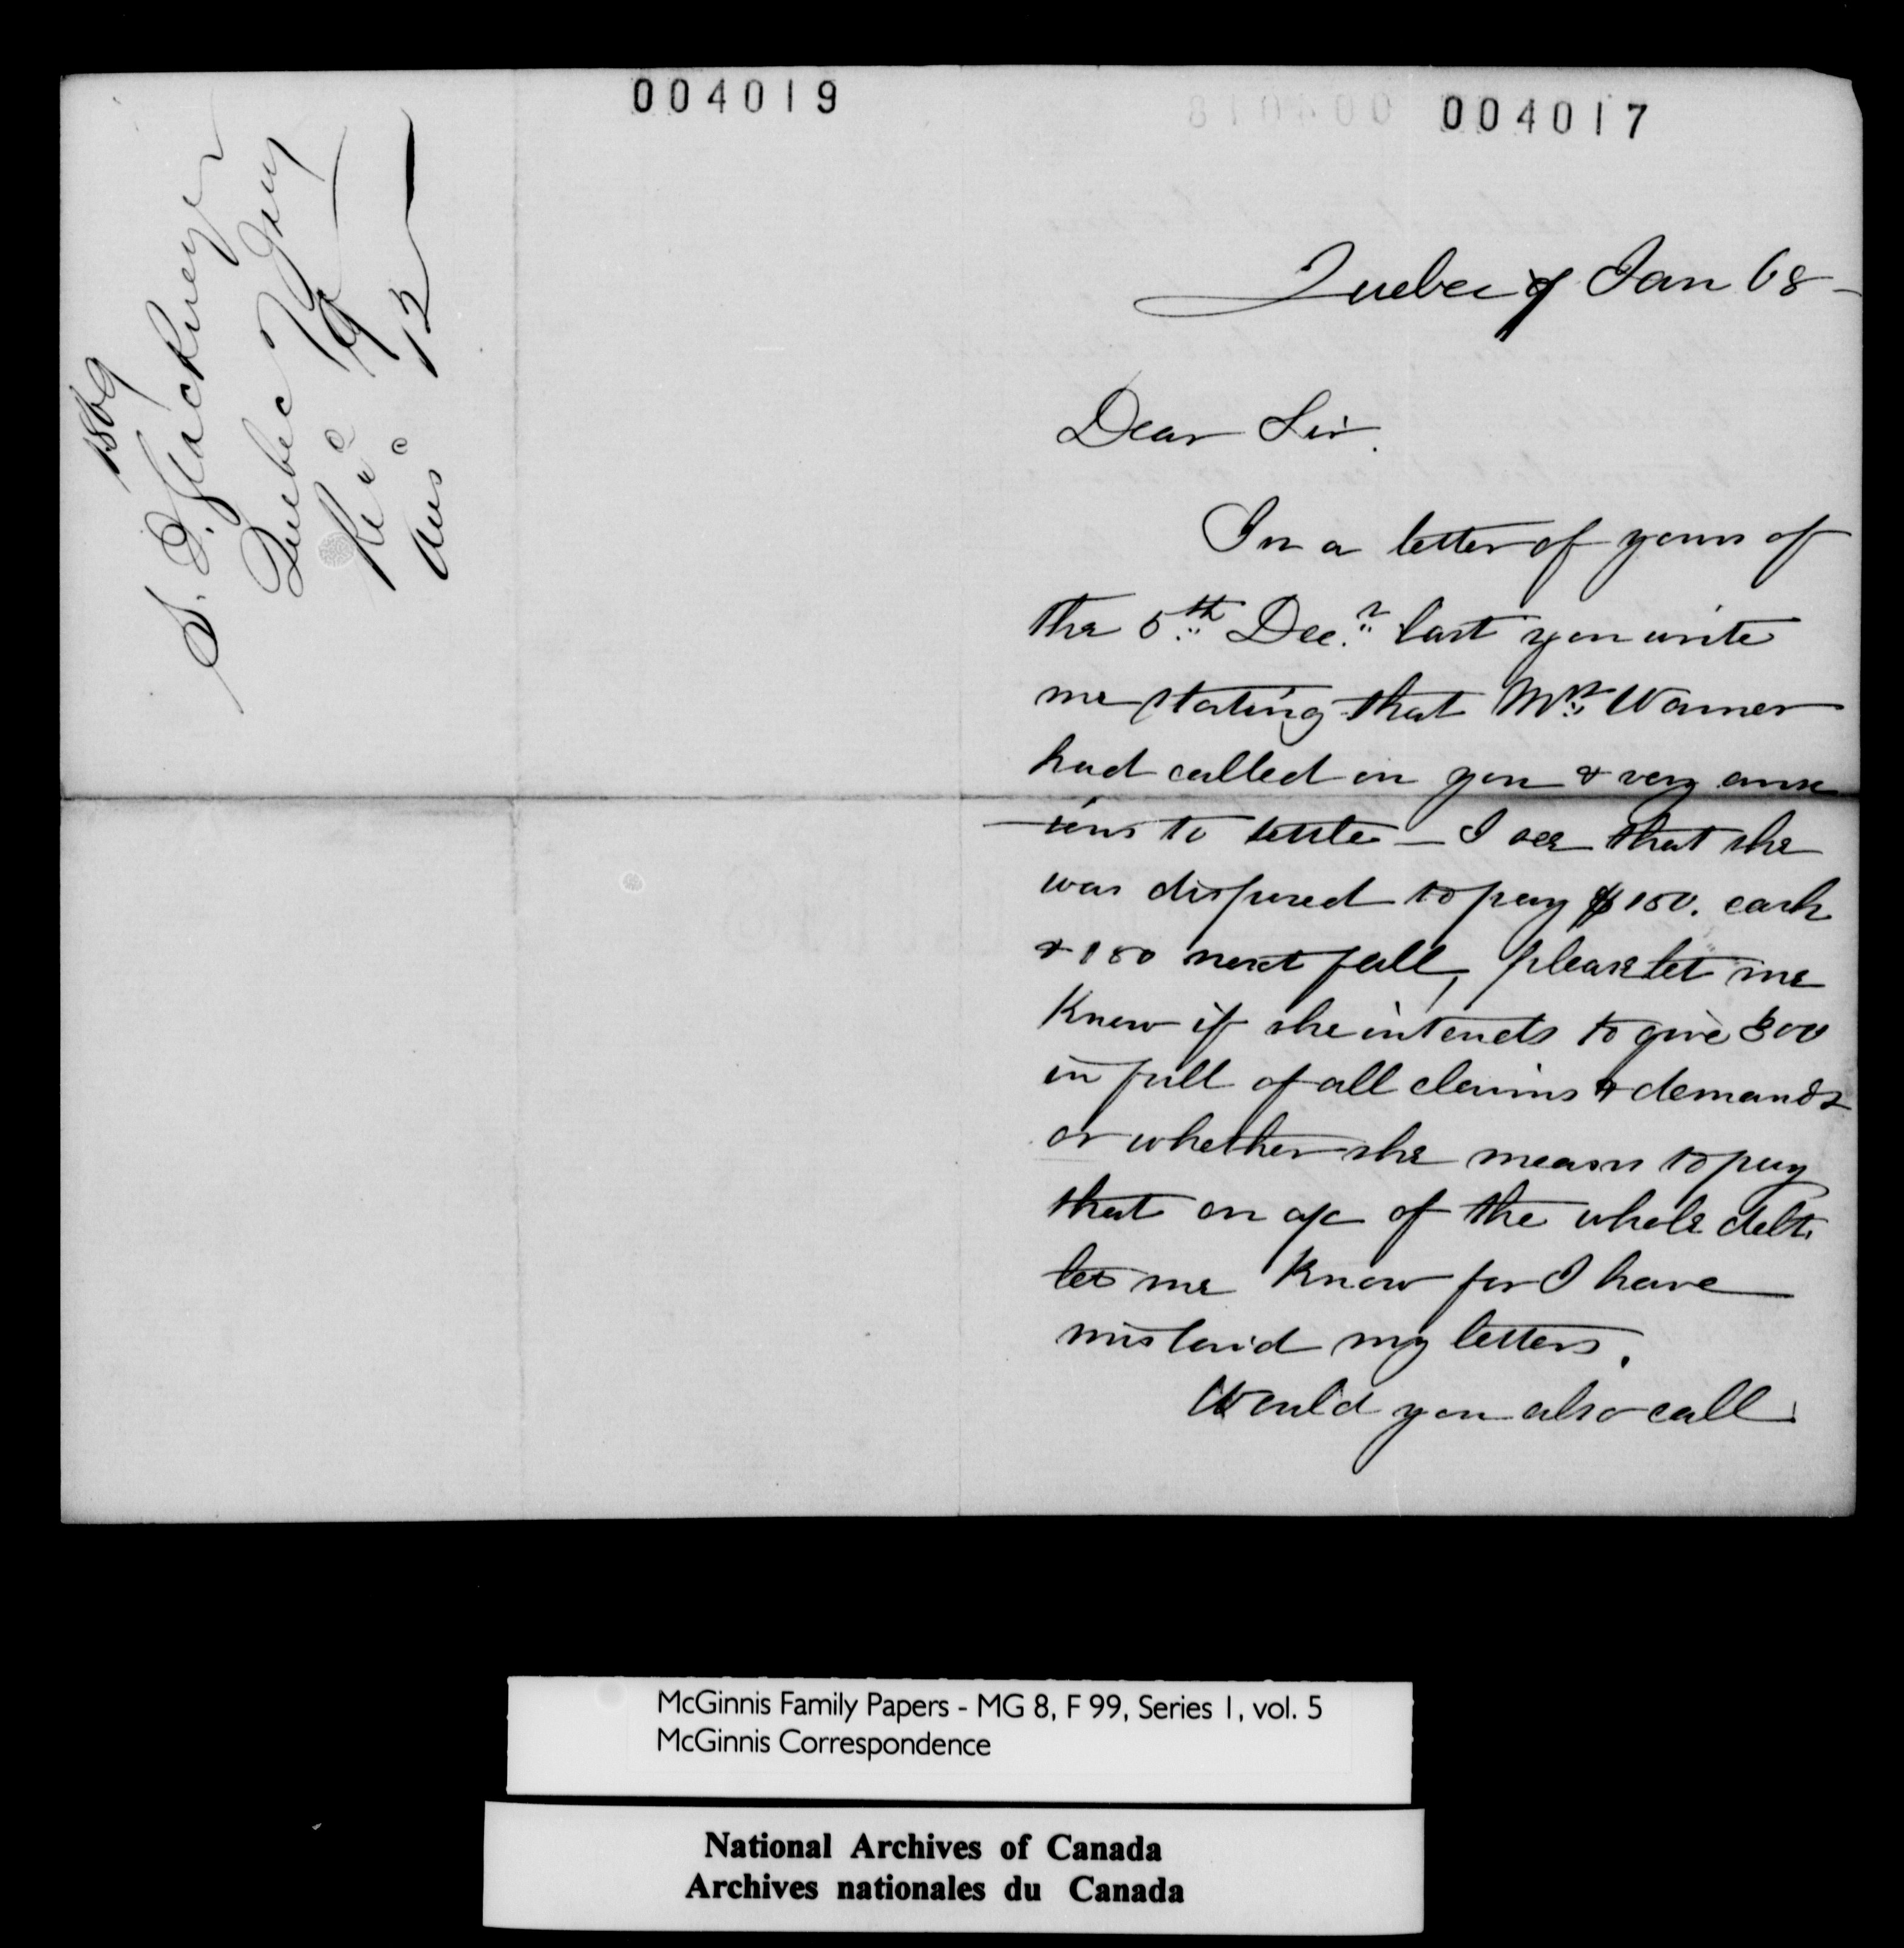 004019
004017
1869
S. D. Mackney
Quebec 7 Jany
Recc 9
Ans 12
Quebec 7 Jan 68
Dear Sir.
In a letter of yours of
the 5th Decr last you write
me stating that Mrs Warner
had called on you & very anx
-ious to settle - I see that she
was disposed to pay $150. cash
& 150 next fall, please let me
Know if she intends to give 300
in full of all claims & demands
or whether she means to pay
that on a/c of the whole debt.
let me Know for I have
mislaid my letters.
Would you also call
McGinnis Family Papers - MG 8, F 99, Series 1, vol. 5
McGinnis Correspondence
National Archives of Canada
Archives nationales du Canada